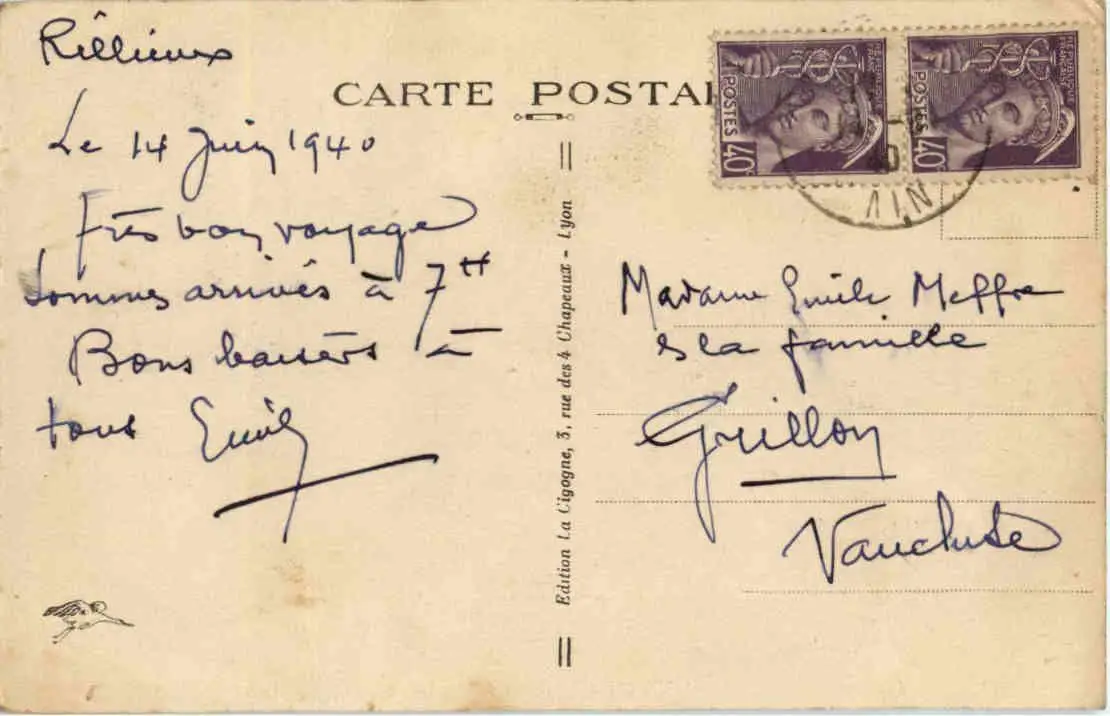 Rillieux
CARTE POSTAL
Le 14 Juin 1940
Très bon voyage
Sommes arrivés à 7H
Bons baisers à
tous Emile
Edition La Cigogne, 3, rue des 4 Chapeaux - Lyon
REPUBLIQUE FRANÇAISE
POSTES
40c
REPUBLIQUE FRANÇAISE
POSTES
40c
AIN
Madame Emile Meffre
& la famille
Grillon
Vaucluse